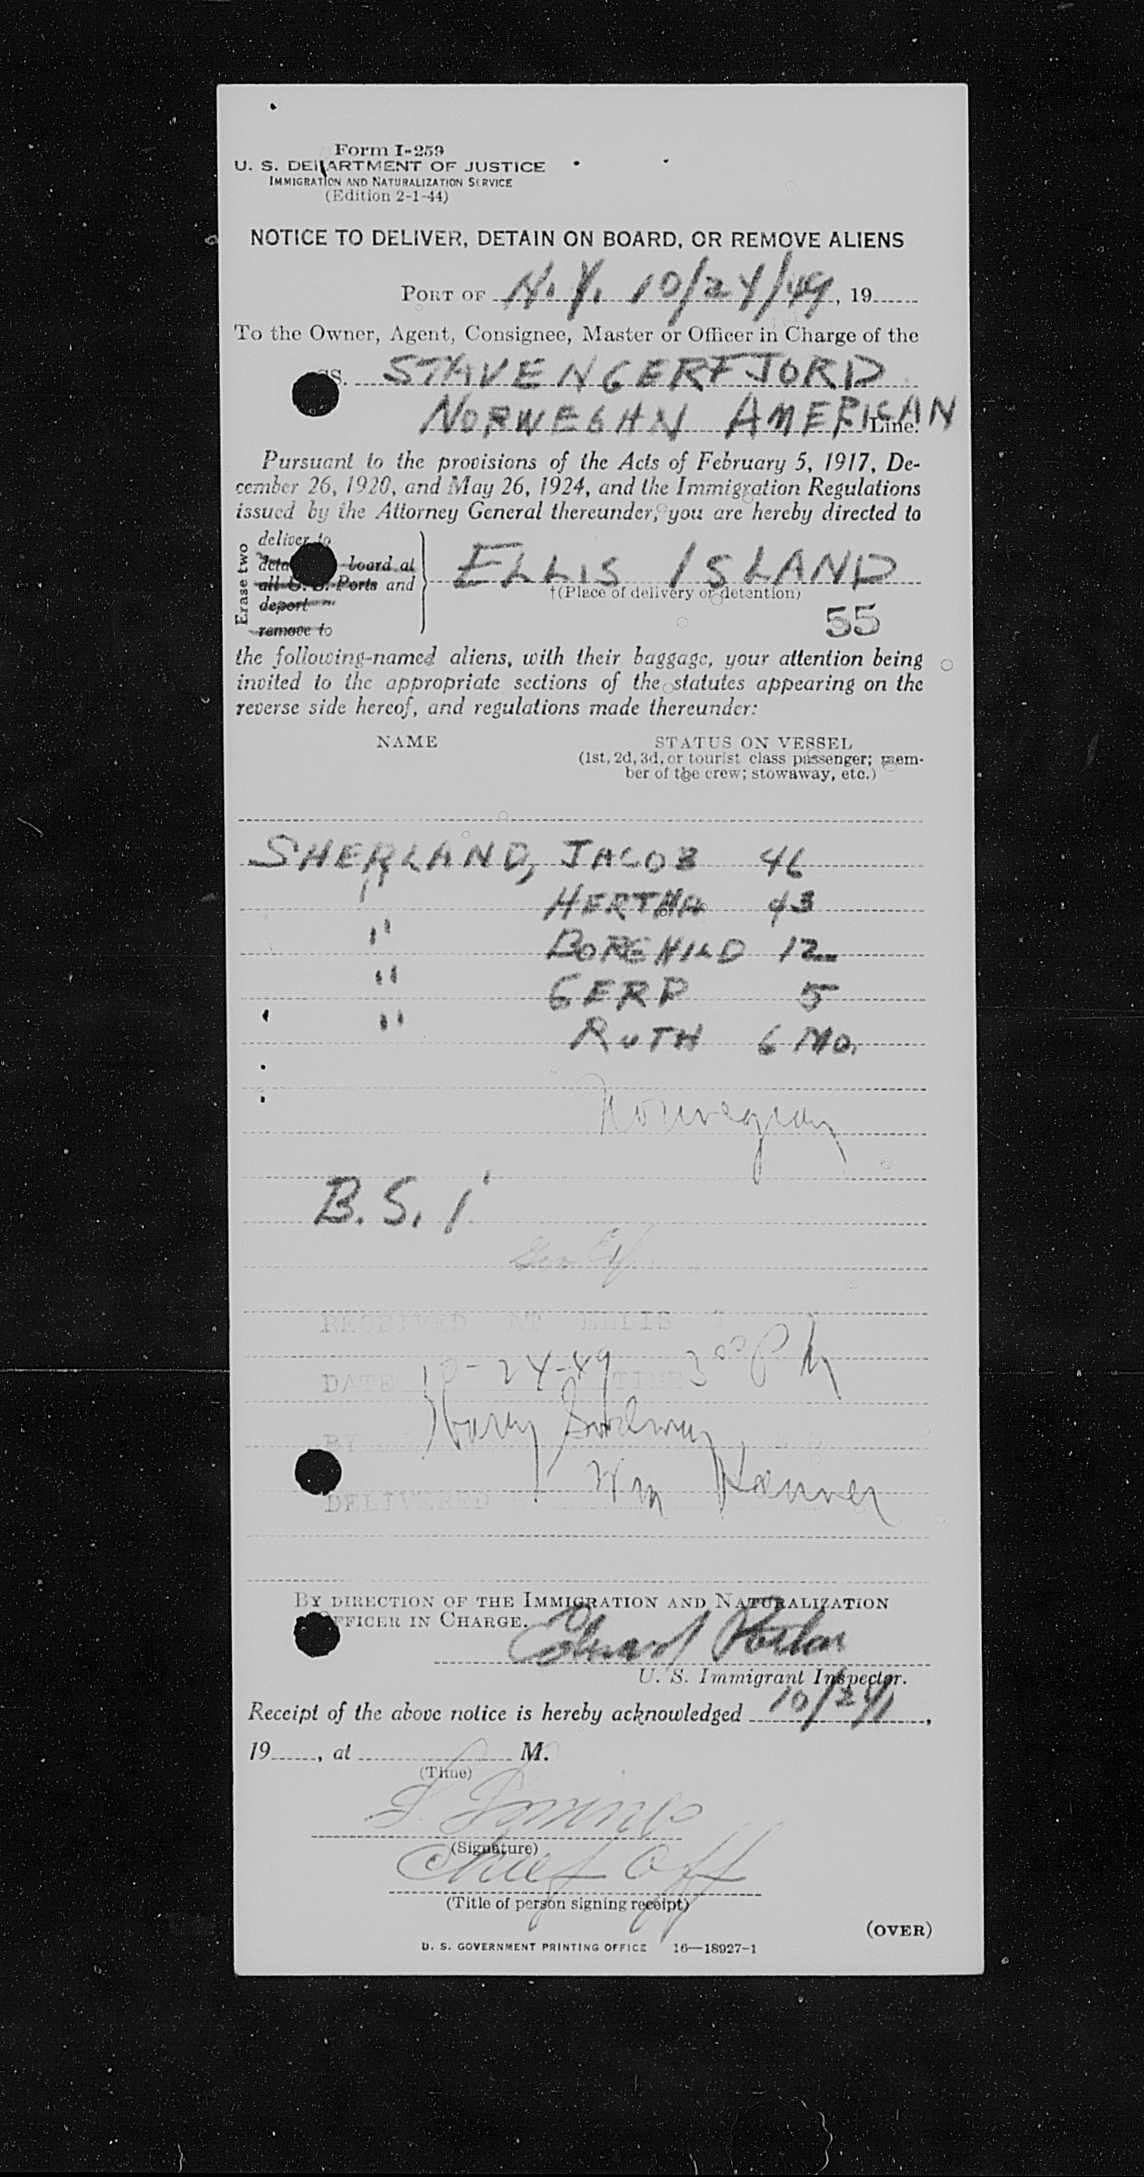 Form I-259
U. S. DEPARTMENT OF JUSTICE
IMMIGRATION AND NATURALIZATION SERVICE
(Edition 2-1-44)
NOTICE TO DELIVER, DETAIN ON BOARD, OR REMOVE ALIENS
PORT OF N.Y. 10/24/49, 19
To the Owner, Agent, Consignee, Master or Officer in Charge of the
SS. STAVENGERFJORD
NORWEGHN AMERICAN Line.
Pursuant to the provisions of the Acts of February 5, 1917, De-
cember 26, 1920, and May 26, 1924, and the Immigration Regulations
issued by the Attorney General thereunder, you are hereby directed to
Erase two
deliver to
board at
all U. S. Ports and
deport
remove to
ELLIS ISLAND
†(Place of delivery or detention)
55
the following-named aliens, with their baggage, your attention being
invited to the appropriate sections of the statutes appearing on the
reverse side hereof, and regulations made thereunder:
NAME STATUS ON VESSEL
(1st, 2d, 3d, or tourist class passenger; mem-
ber of the crew; stowaway, etc.)
SHERLAND, JACOB 46
" HERTHA 43
" BORGHILD 12
" GERD 5
" RUTH 6 MO.
Norwegian
B.S.I
RECEIVED AT ELLIS I
DATE 10-24-49 TIME 3 00 PM
BY Harry
DELIVERED Wm
BY DIRECTION OF THE IMMIGRATION AND NATURALIZATION
OFFICER IN CHARGE.
Edward
U. S. Immigrant Inspector.
Receipt of the above notice is hereby acknowledged 10/24,
19, at M.
(Time)
(Signature)
Chief Off
(Title of person signing receipt)
(OVER)
U. S. GOVERNMENT PRINTING OFFICE 16—18927-1